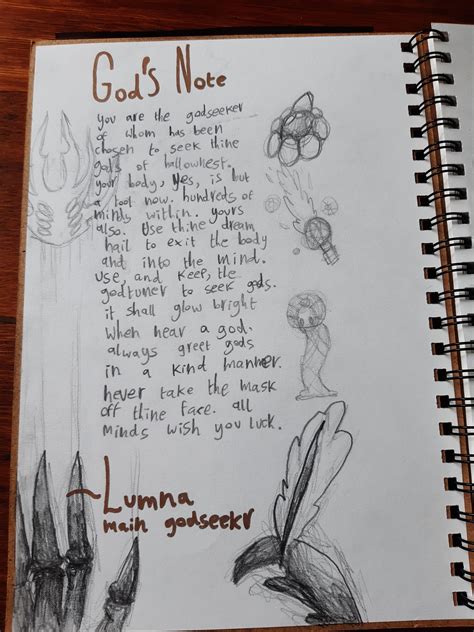 God's Note
you are the godseeker
of whom has been
chosen to seek thine
gods of hallowliest.
your body, yes, is but
a tool now. hundreds of
minds within. yours
also. Use thine dream
nail to exit the body
and into the mind.
use, and keep, the
godtuner to seek gods.
it shall glow bright
when hear a god.
always greet gods
in a kind manner.
never take the mask
off thine face. all
minds wish you luck.
~Lumna
main godseekr